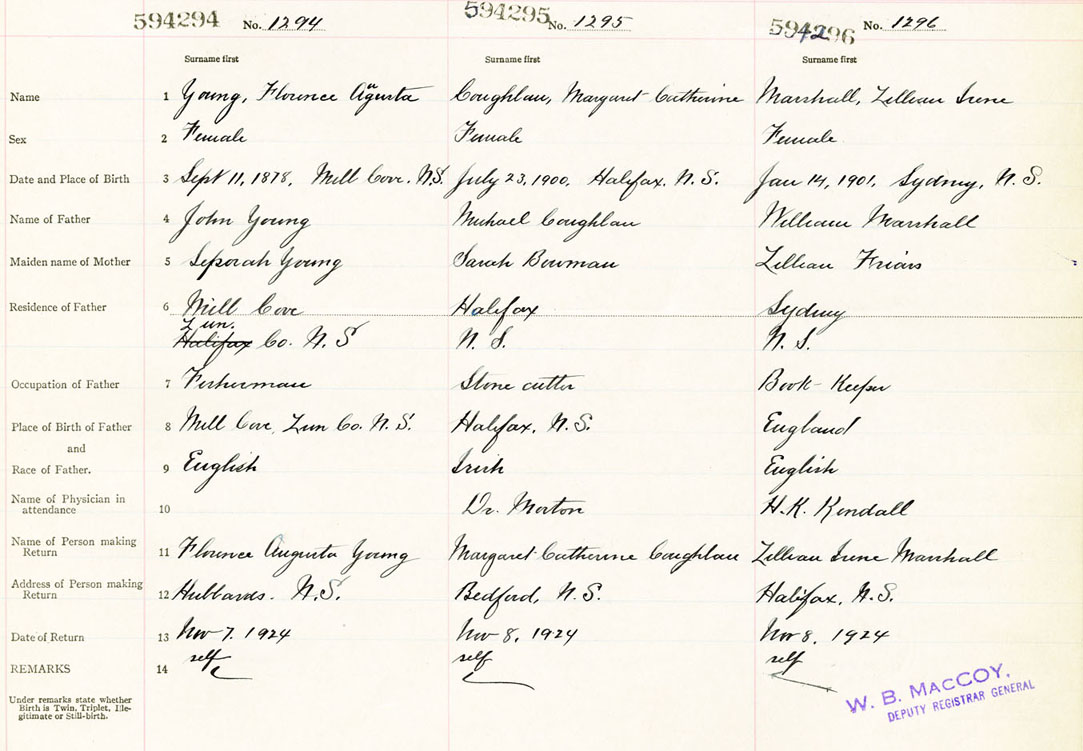 594294 No. 1294 594295 No. 1295 594296 No. 1296
Surname first Surname first Surname first
Name 1 Young, Florence Augusta Coughlan, Margaret Catherine Marshall, Lillian Irene
Sex 2 Female Female Female
Date and Place of Birth 3 Sept 11, 1878, Mill Cove. N.S. July 23, 1900, Halifax, N.S. Jan 14, 1901, Sydney, N.S.
Name of Father 4 John Young Michael Coughlan William Marshall
Maiden name of Mother 5 Seporah Young Sarah Bowman Lillian Friars
Residence of Father 6 Mill Cove Halifax Sydney
Lun.
Halifax Co. N.S N.S. N.S.
Occupation of Father 7 Fisherman Stone cutter Book-Keeper
Place of Birth of Father 8 Mill Cove, Lun Co. N.S. Halifax, N.S. England
and
Race of Father. 9 English Irish English
Name of Physician in
attendance 10 Dr. Morton H.K. Kendall
Name of Person making
Return 11 Florence Augusta Young Margaret Catherine Coughlan Lillian Irene Marshall
Address of Person making
Return 12 Hubbards. N.S. Bedford, N.S. Halifax, N.S.
Date of Return 13 Nov 7, 1924 Nov 8, 1924 Nov 8, 1924
REMARKS 14 self self self
Under remarks state whether
Birth is Twin, Triplet, Ille-
gitimate or Still-birth.
W. B. MACCOY,
DEPUTY REGISTRAR GENERAL